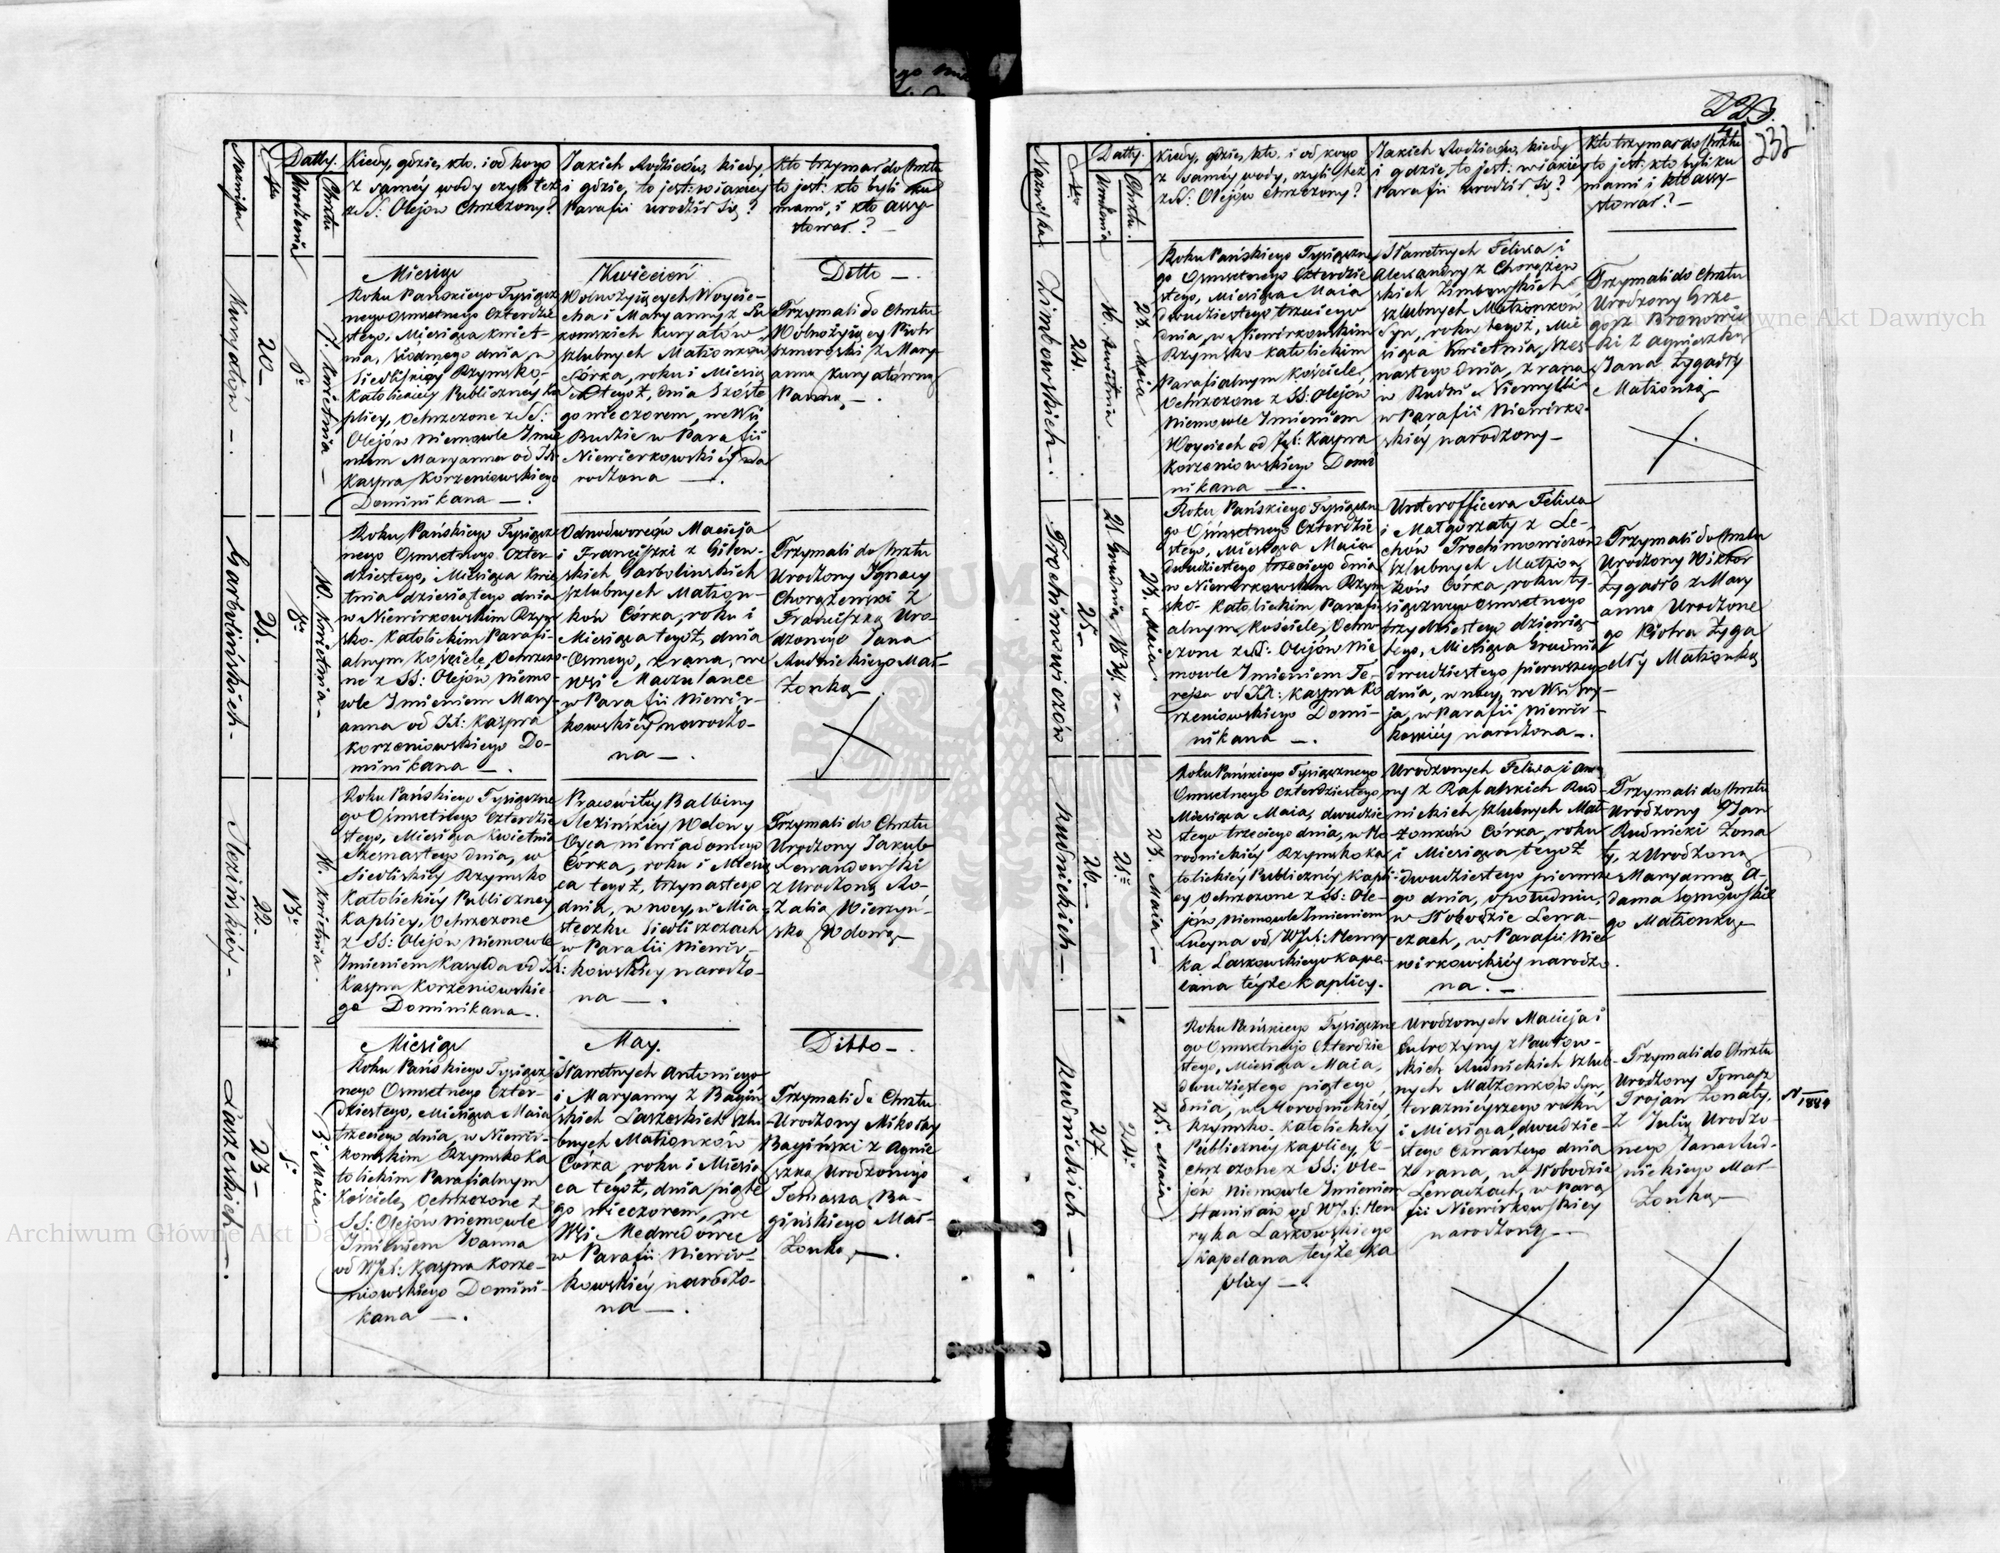 223.
232
Nazwiska
N-ro
Datty.
Urodzenia
Chrztu
Kiedy, gdzie, kto, i od kogo
z saméy wody czyli też
z SS: Olejów Chrzczony?
Jakich Rodziców, kiedy,
i gdzie, to jest: w iakiey
Parafii urodził się?
Kto trzymał do Chrztu
to jest: kto byli ku
mami, i kto assy-
stował?—
Kuryatów —.
20—
6º
7. Kwietnia —
Miesiąc
Roku Pańskiego Tysiącz
nego Osmsetnego Czterdzie
stego, Miesiąca Kwiet-
nia, siódmego dnia, w
Siedliskiey Rzymsko-
Katolickiey Publiczney Ka
plicy, Ochrzczone z SS:
Olejów Niemowle Imie
niem Maryanna od JX:
Kaspra Korzeniowskiego
Dominikana —.
Kwiecień
Wolnożyiących Woycie-
cha i Maryanny z
Kuryatów,
szlubnych Małżonków
Córka, roku i Miesią
ca tegoż, dnia szóste
go wieczorem, we Wsi
Budzie w Parafii
Niewierkowskiéy na
rodzona —.
Ditto —.
Trzymali do Chrztu
Wolnożyiący Piotr
Szmoroski, z Mary
anną Kuryatówną
Panną —.
Garbolińskich.
21.
8º
10. Kwietnia —
Roku Pańskiego Tysiącz
nego Osmsetnego Czter-
dziestego, Miesiąca Kwie
tnia dziesiątego dnia
w Niewirkowskim Rzym
sko-Katolickim Parafi-
alnym Kościele, Ochrzczo-
ne z SS: Olejów, Niemo-
wle Imieniem Mary-
anna od JX: Kaspra
Korzeniowskiego Do-
minikana —.
Odnodworców Macieja
i Franciszki z Gilew-
skich Garbolinskich
szlubnych Małżon-
ków Córka, roku i
Miesiąca tegoż, dnia
Osmego, z rana, we
Wsi Maczulance
w Parafii Niewir-
kowskiéy narodzo-
na —.
Trzymali do Chrztu
Urodzony Ignacy
Chorążewski z
Franciszką Uro-
dzonego Jana
Rudnickiego Mał-
żonką —.
Sleżińskiéy —
22—
13º
16. Kwietnia.
Roku Pańskiego Tysiączne
go Osmsetnego Czterdzie
stego, Miesiąca Kwietnia
szesnastego dnia, w
Siedliskiey Rzymsko
Katolickiéy Publiczney
Kaplicy, Ochrzczone
z SS: Olejów Niemowle
Imieniem Kasylda od JX:
Kaspra Korzeniowskie-
go Dominikana —.
Pracowitey Balbiny
Sleżińskiéy Wdowy
Oyca niewiadomego
Córka, roku i Miesią
ca tegoż, trzynastego
dnia, w nocy, w Mia
steczku Siedliszczach
w Parafii Niewir-
kowskiéy narodzo-
na —.
Trzymali do Chrztu
Urodzony Jakub
Lewandowski
z Urodzoną Ro-
zalią Wierzyń-
ską Wdową —
Laszeskich —.
23—
5º
3. Maia.
Miesiąc
Roku Pańskiego Tysiącz
nego Osmsetnego Czter-
dziestego, Miesiąca Maia
trzeciego dnia, w Niewir-
kowskim Rzymsko Ka
tolickim Parafialnym
Kościele, Ochrzczone z
SS: Olejów Niemowle
Imieniem Joanna
od WJX: Kaspra Korze-
niowskiego Domini-
kana —.
May.
Sławetnych Antoniego
i Maryanny z Bagiń
skich Laszeskich szlu
bnych Małżonków
Córka, roku i Miesią
ca tegoż, dnia piąte
go wieczorem, we
Wsi Medwedówce
w Parafii Niewir-
kowskiéy narodzo-
na —.
Ditto —.
Trzymali do Chrztu
Urodzony Mikołay
Bagiński z Agnie
szką Urodzonego
Tomasza Ba-
gińskiego Mał-
żonką —.
Nazwiska.
N-ro
Datty.
Urodzenia
Chrztu.
Kiedy, gdzie, kto, i od kogo
z samey wody, czyli też
z SS: Olejów Chrzczony?
Jakich Rodziców, kiedy
i gdzie, to jest: w iakiéy
Parafii urodził się?
Kto trzymał do Chrztu
to jest: kto byli ku
mami i kto assy-
stował?—
Zimbowskich —.
24.
16. Kwietnia.
23. Maia
Roku Pańskiego Tysiączne
go Osmsetnego Czterdzie
stego, Miesiąca Maia
dwudziestego trzeciego
dnia, w Niewirkowskim
Rzymsko-Katolickim
Parafialnym Kościele,
Ochrzczone z SS: Olejów
Niemowle Imieniem
Woyciech od JX: Kaspra
Korzeniowskiego Domi
nikana —.
Sławetnych Felixa i
Alexandry z Chorążew
skich Zimbowskich
szlubnych Małżonków
Syn, roku tegoż, Mie
siąca Kwietnia, szes
nastego dnia, z rana
w Rudni Niemylli
w Parafii Niewirko-
skiéy narodzony —
Trzymali do Chrztu
Urodzony Grze-
gorz Bronowic
ki z Agnieszką
Jana Zygadły
Małżonką
Trochimowiczów
25—
21 Grudnia 1839 r.
23. Maia
Roku Pańskiego Tysiączne
go Osmsetnego Czterdzie
stego, Miesiąca Maia
dwudziestego trzeciego dnia
w Niewirkowskim Rzym
sko-Katolickim Parafi
alnym Kościele, Ochrz
czone z SS: Olejów Nie
mowle Imieniem Te-
ressa od JX: Kaspra Ko
rzeniowskiego Domi-
nikana —.
Unterofficera Felixa
i Małgorzaty z Le-
chów Trochimowiczów
szlubnych Małżon
ków Córka, roku ty-
siącznego osmsetnego
trzydziestego dziewią-
tego, Miesiąca Grudnia
dwudziestego pierwszego
dnia, w nocy, we Wsi
w Parafii Niewir-
koskiéy narodzona —.
Trzymali do Chrztu
Urodzony Wiktor
Zygadło z Mary
anną Urodzone
go Piotra Zyga
dły Małżonką
Rudnickich —.
26—
21º
23. Maia —
Roku Pańskiego Tysiącznego
Osmsetnego Czterdziestego
Miesiąca Maia, dwudzie
stego trzeciego dnia, w Ho
rodnickiéy Rzymsko Ka
tolickiéy Publicznéy Kapli
cy Ochrzczone z SS: Ole-
jów, Niemowle Imieniem
Lucyna od WJX: Henry-
ka Laskowskiego Kape-
lana teyże Kaplicy.
Urodzonych Felixa i An
ny z Rafalskich Rud-
nickich, szlubnych Mał-
żonków Córka, roku
i Miesiąca tegoż
dwudziestego pierwsze
go dnia, o południu,
w Słobodzie Lewa-
czach, w Parafii Nie
wirkowskiéy narodzo
na. —
Trzymali do Chrztu
Urodzony Jan
Rudnicki Żona
ty, z Urodzoną
Maryanną A-
dama Somowskie
go Małżonką —
Rudnickich —.
27.
24º
25. Maia
Roku Pańskiego Tysiączne
go Osmsetnego Czterdzie
stego, Miesiąca Maia,
dwudziestego piątego
dnia, w Horodnickiéy,
Rzymsko-Katolickiéy
Publicznéy Kaplicy, O-
chrzczone z SS: Ole-
jów Niemowle Imieniem
Stanisław od WJX: Hen
ryka Laskowskiego
Kapelana teyże Ka
plicy —.
Urodzonych Macieja i
Eufrozyny z Pawłow-
skich Rudnickich szlub
nych Małżonków Syn,
teraznieyszego roku
i Miesiąca, dwudzie-
stego czwartego dnia
z rana, w Słobodzie
Lewaczach, w Para
fii Niewirkowskiéy
narodzony —
Trzymali do Chrztu
Urodzony Tomasz
Trojan Żonaty,
z Julią Urodzo-
nego Jana Rud-
nickiego Mał-
żonką —
N 1884
Archiwum Główne Akt Dawnych
Archiwum Główne Akt Dawnych